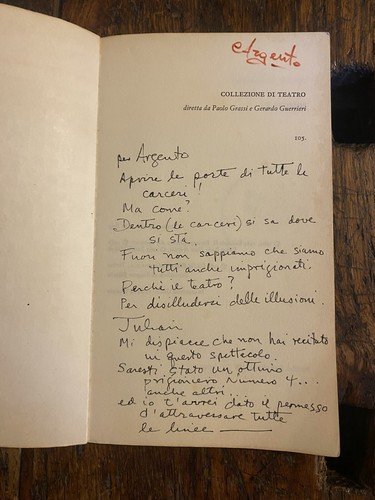 eArgento
COLLEZIONE DI TEATRO
diretta da Paolo Grassi e Gerardo Guerrieri
105.
per Argento
Aprire le porte di tutte le
carceri!
Ma come?
Dentro (le carceri) si sa dove
si sta.
Fuori non sappiamo che siamo
tutti anche imprigionati.
Perchè il teatro?
Per disilluderci delle illusioni.
Julian
Mi dispiacce che non hai recitato
in questo spettacolo.
Saresti stato un ottimo
prigioniero numero 4...
anche altri.
ed io t'avrei dato il permesso
d'attraversare tutte
le linee